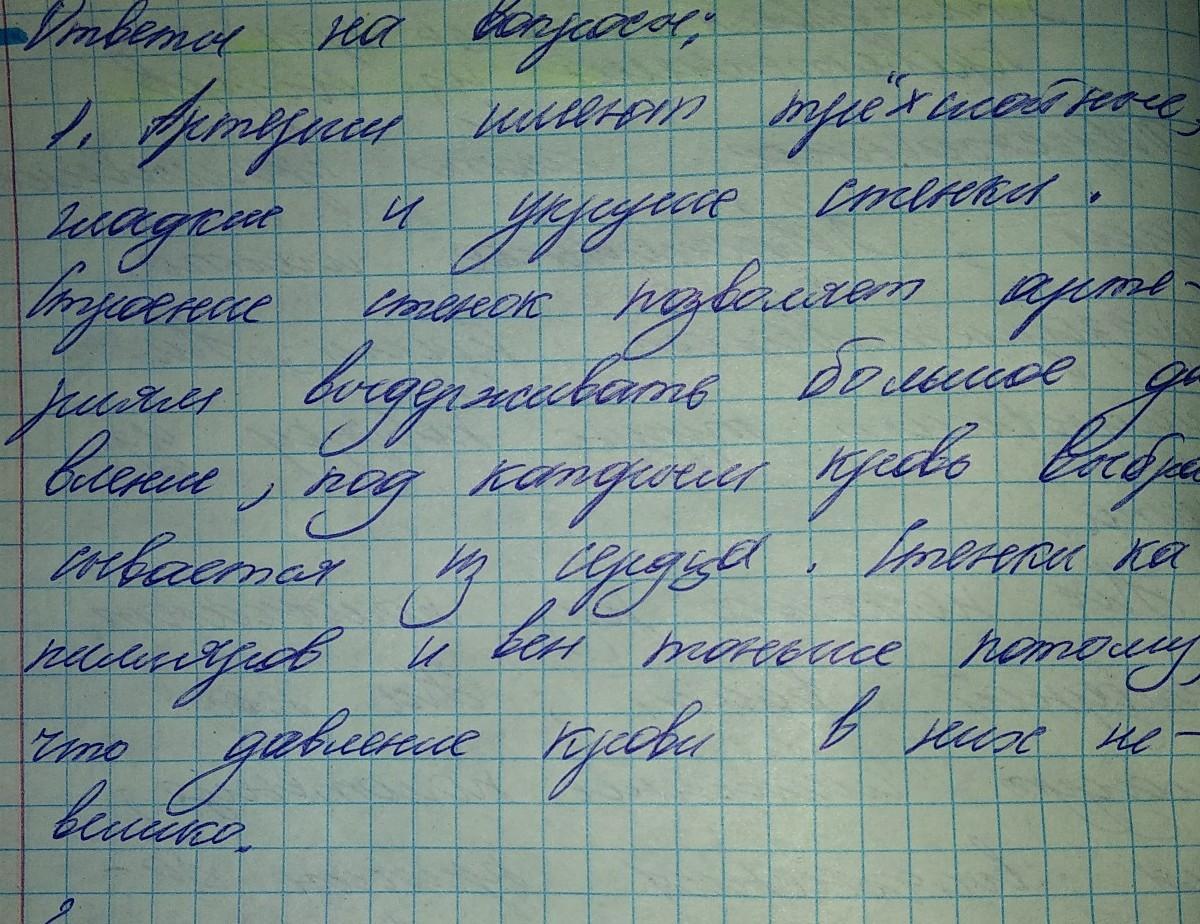 Ответы на вопросы:
1. Артерии имеют трёхслойные,
гладкие и упругие стенки.
Строение стенок позволяет арте-
риям выдерживать большое да
вление, под которым кровь выбра
сывается из сердца. Стенки ка
пилляров и вен тоньше потому,
что давление крови в них не-
велико.